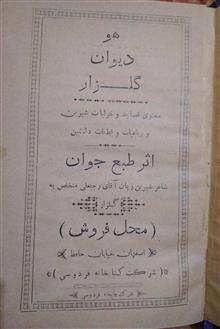 هو
دیوان
گلزار
محتوی قصاید و غزلیات شیرین
و رباعیات و قطعات دلنشین
اثر طبع جوان
شاعر شیرین زبان آقای رجبعلی متخلص به
گلزار
( محل فروش )
اصفهان خیابان حافظ
( شرکت کتابخانه فردوسی )
شرکت چاپخانه فردوسی